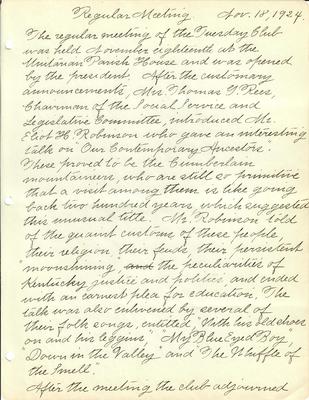 Regular Meeting. Nov. 18, 1924.
The regular meeting of the Tuesday Club
was held November eighteenth at the
Unitarian Parish House and was opened
by the president. After the customary
announcements, Mrs. Thomas G. Rees,
Chairman of the Social Service and
Legislative Committee, introduced Mr.
Eliot H. Robinson who gave an interesting
talk on "Our Contemporary Ancestors".
These proved to be the Cumberlain
mountaineers, who are still so primitive
that a visit among them is like going
back two hundred years, which suggested
this unusual title. Mr. Robinson told
of the quaint customs of these people,
their religion, their feuds, their persistent
"moonshining", and the peculiarities of
Kentucky justice and politics, and ended
with an earnest plea for education. The
talk was also enlivened by several of
their folk songs, entitled, "With his old shoes
on and his leggins", "My Blue Eyed Boy,"
"Down in the Valley" and "The Whiffle of
the
After the meeting the club adjourned